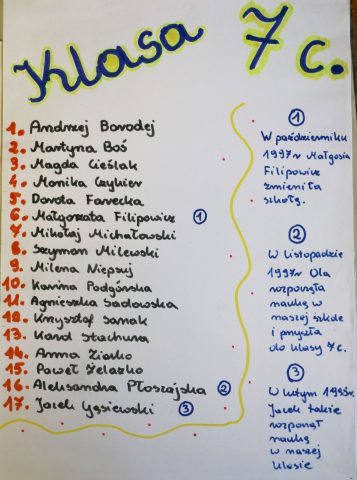 Klasa 7 c.
1. Andrzej Borodej
2. Martyna Boś
3. Magda Cieślak
4. Monika Czykier
5. Dorota Farecka
6. Małgorzata Filipowicz ①
7. Mikołaj Michałowski
8. Szymon Milewski
9. Milena Niepsuj
10. Karina Podgórska
11. Agnieszka Sadowska
12. Krzysztof Samak
13. Karol Stachura
14. Anna Ziarko
15. Paweł Żelazko
16. Aleksandra Płoszajska ②
17. Jacek Gąsiewski ③
①
W październiku
1997r Małgosia
Filipowicz
zmieniła
szkołę.
②
W listopadzie
1997r Ola
rozpoczęła
naukę w
naszej szkole
i przyszła
do klasy 7c.
③
W lutym 1998r.
Jacek także
rozpoczął
naukę
w naszej
klasie